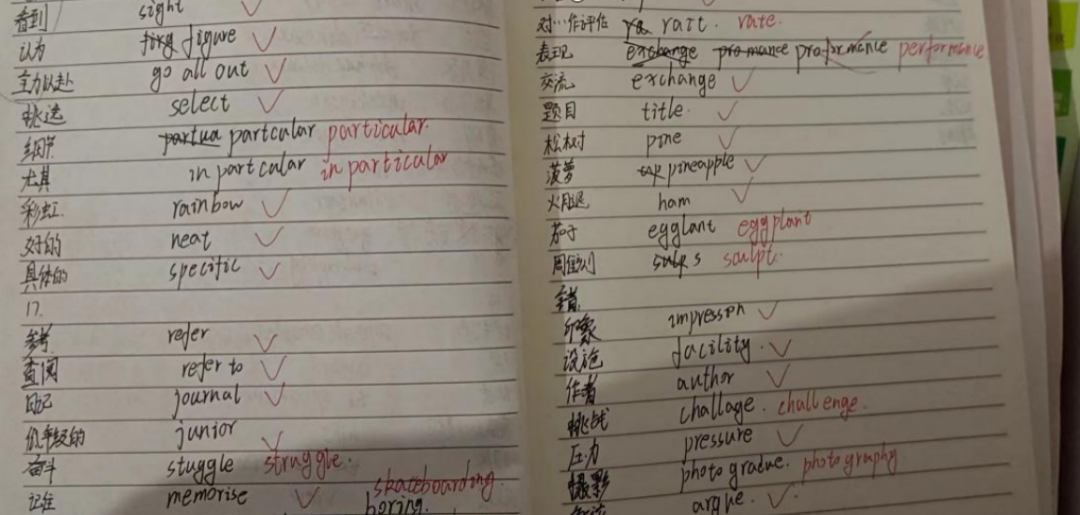 看到 sight
认为 figure
全力以赴 go all out
挑选 select
细节 partua partcular particular.
尤其 in partcular in particular
彩虹 rainbow
好的 neat
具体的 specific
17.
参考 refer
查阅 refer to
日记 journal
低年级的 junior
奋斗 stuggle struggle.
记住 memorise skateboarding.
boring.
对…作评估 rait. rate.
表现 exchange promance proformence performance
交流 exchange
题目 title.
松树 pine
菠萝 pineapple
火腿 ham
茄子 egglant eggplant
sulps sculpt.
印象 impresson
设施 facility.
作者 author
挑战 challage. challenge.
压力 pressure
摄影 photogradue. photography.
argue.